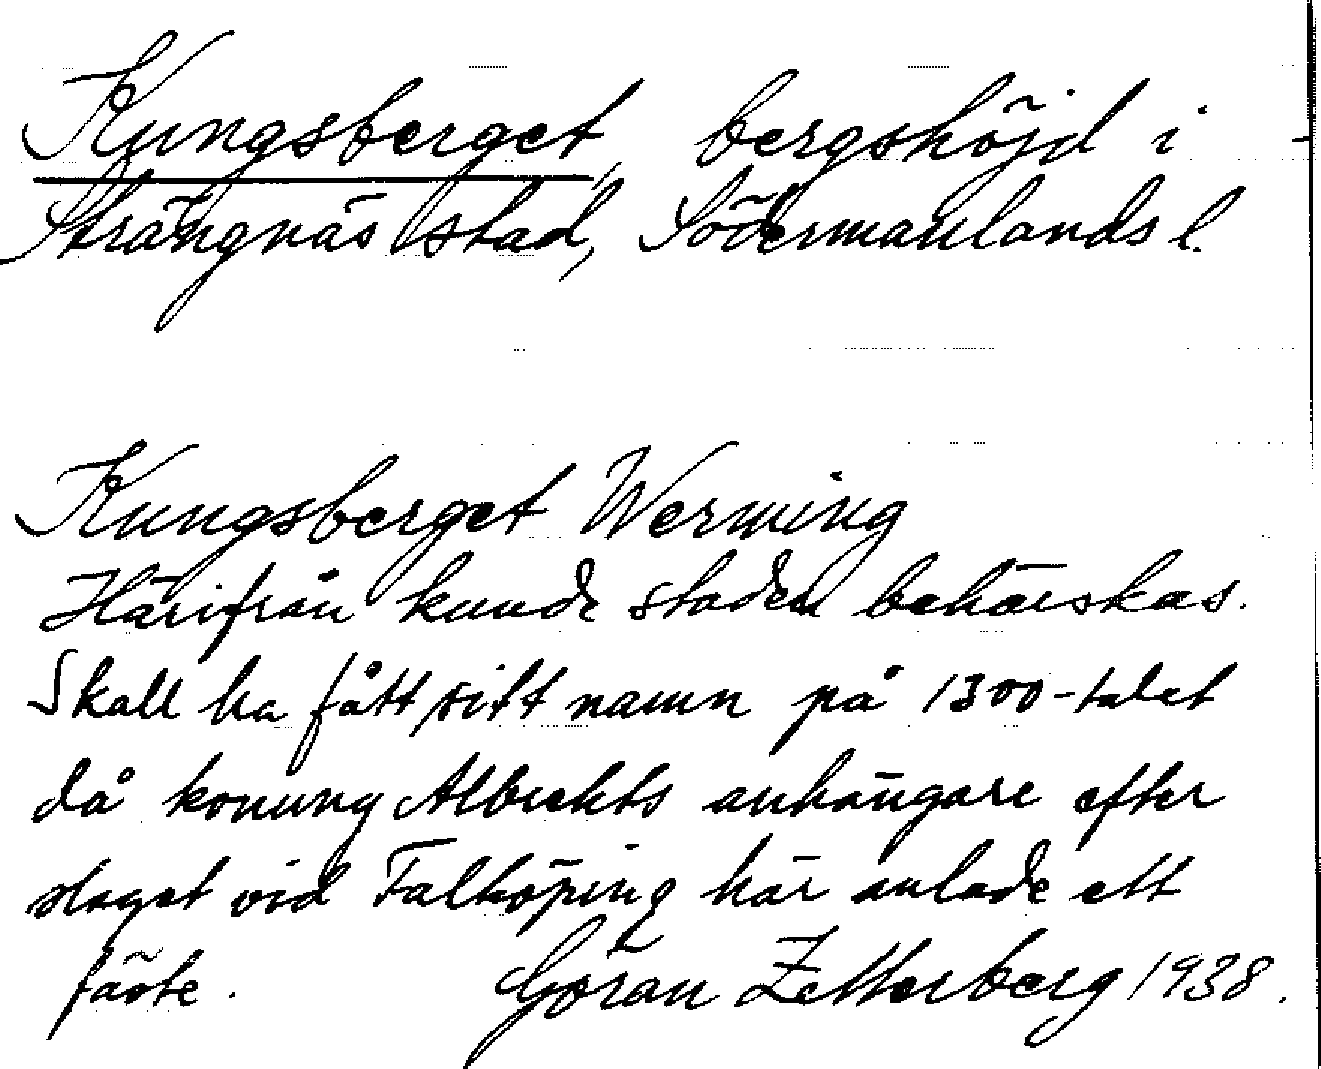 Kungsberget, bergshöjd i
Strängnäs stad, Södermanlands l.
Kungsberget Werming
Härifrån kunde staden behärskas.
Skall ha fått sitt namn på 1300-talet
då konung Albrekts anhängare efter
slaget vid Falköping här anlade ett
fäste.
Göran Zetterberg 1938.